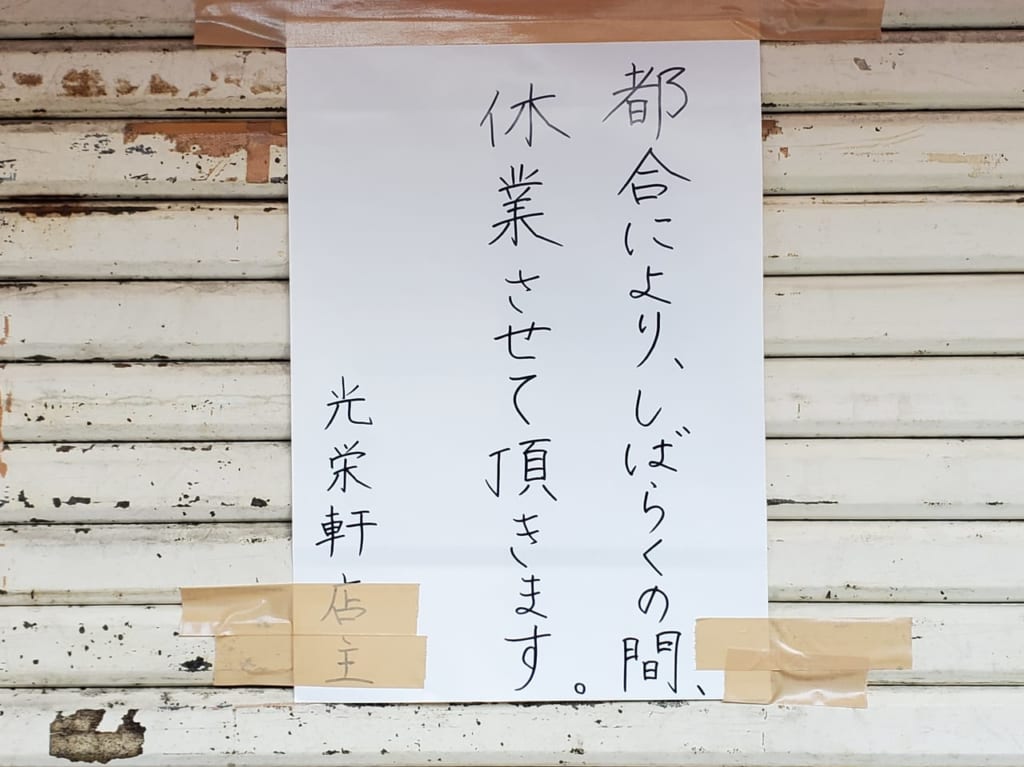 都合により、しばらくの間、
休業させて頂きます。
光栄軒店主